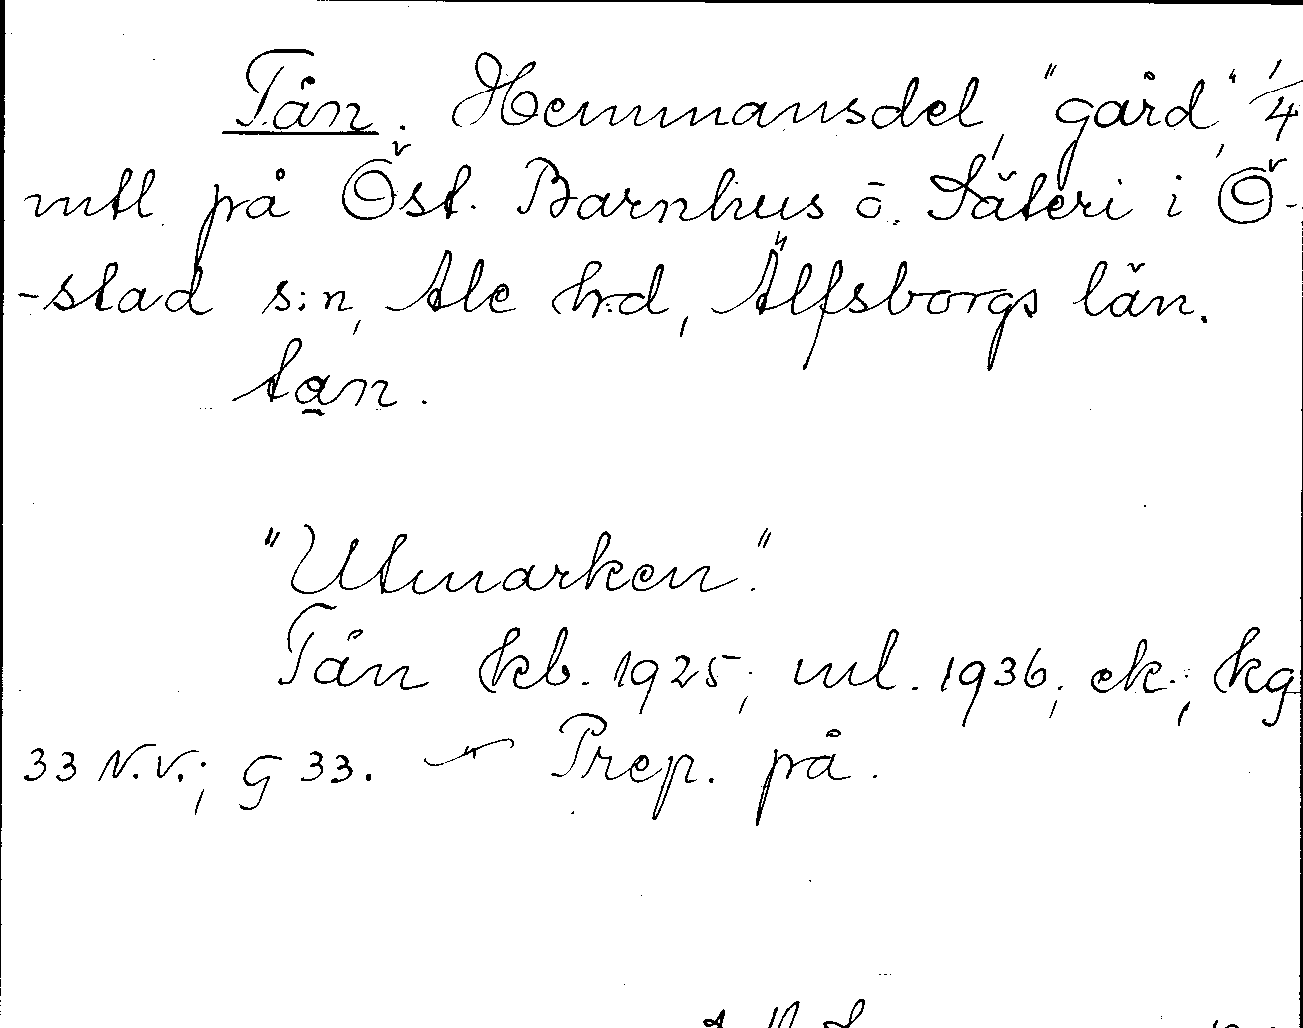 Tån. Hemmansdel, "gård," 1/4
mtl på Öst. Barnhus o. Säteri i Ö-
-stad s:n, Ale h:d, Älfsborgs län.
tan.
"Utmarken."
Tån kb. 1925; ml. 1936; ek.; kg
33 N.V.; G 33. — Prep. på.